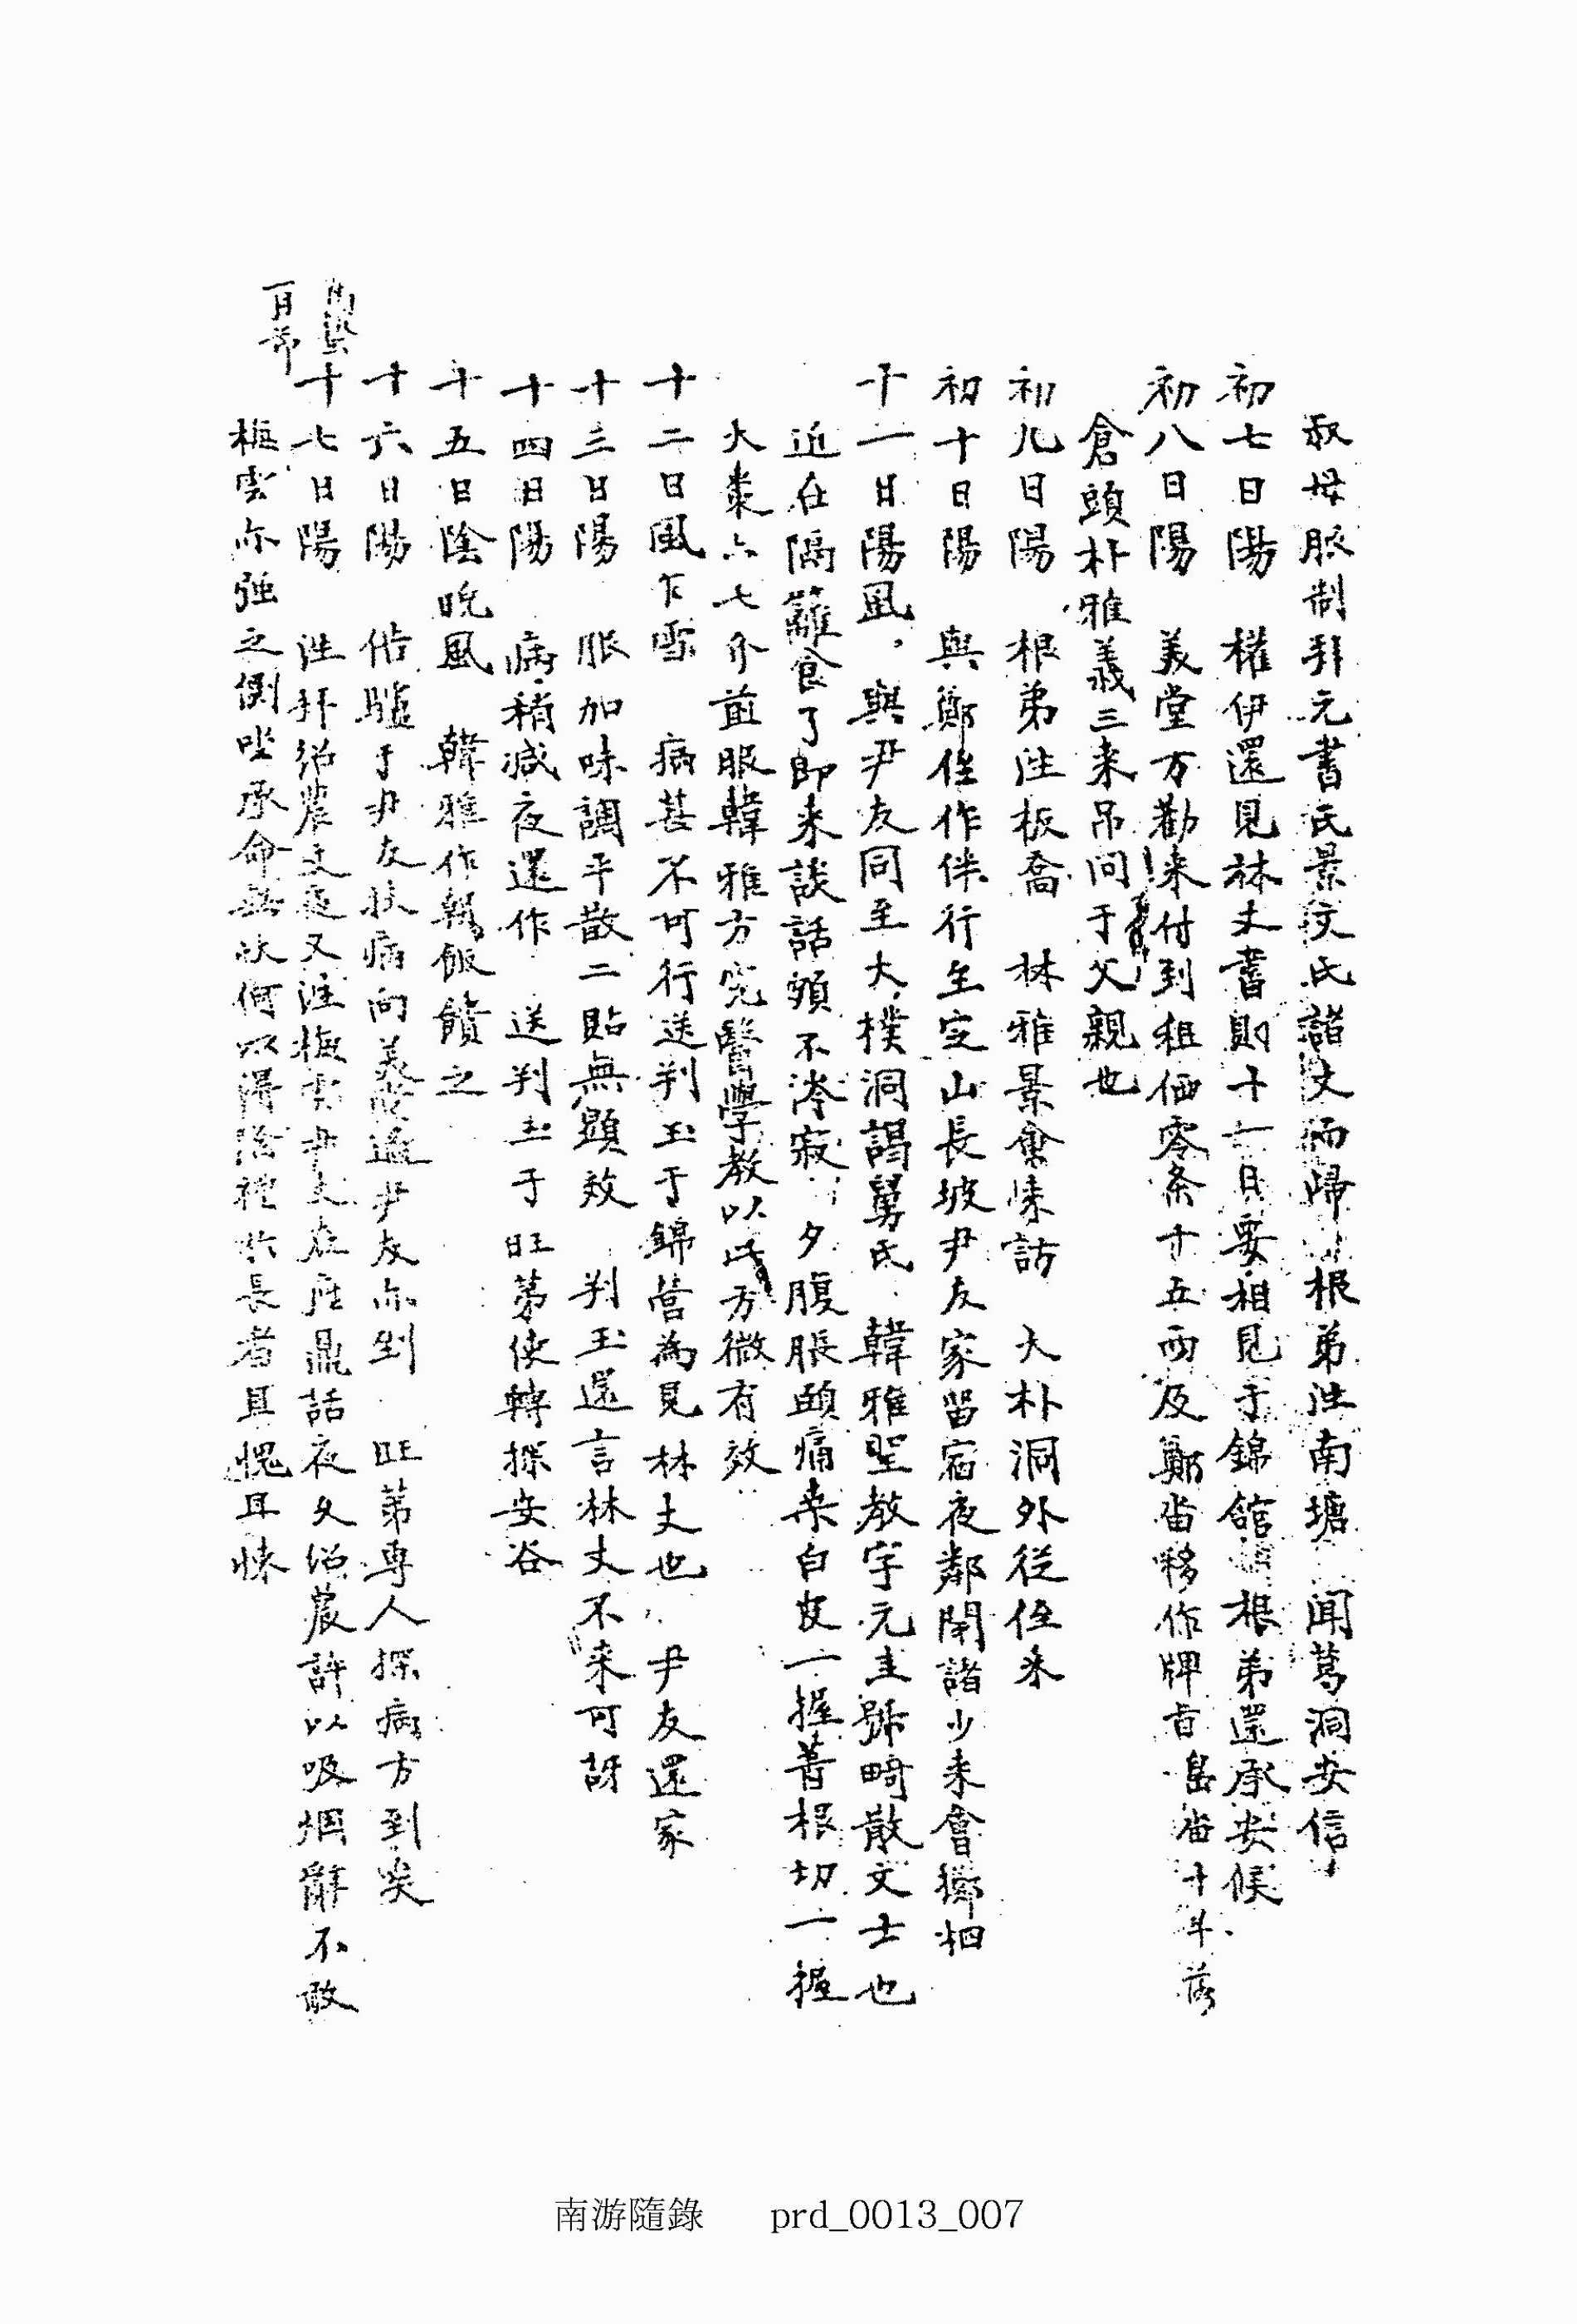 叔母脤制 拜元書氏景文氏諸丈而歸 根弟往南塘 聞葛洞安信
初七日陽 權伊還見林丈書則十一日要相見于錦舘 根弟還承安候
初八日陽 美堂万勸來付到租価零条十五兩及鄭畓移作牌旨 畓十斗落
倉頭朴雅義三來吊問于父親也
初九日陽 根弟往板喬 林雅景會來訪 大朴洞外從侄來
初十日陽 與鄭侄作伴行至定山長坡尹友家留宿夜鄰閈諸少來會擲柶
十一日陽風 與尹友同至大樸洞謁舅氏 韓雅聖教字元圭號畸散文士也
近在隔籬食了卽來談話頗不涔寂 夕腹脹頭痛桒白皮一握菖根切一握
大棗六七介煎服韓雅方究醫學教以此方微有效
十二日風乍雪 病甚不可行送判玉于錦營為見林丈也 尹友還家
十三日陽 脹加味調平散二貼無顯效 判玉還言林丈不來可訝
十四日陽 病稍减夜還作 送判玉于旺苐使轉探安谷
十五日陰晩風 韓雅作朝飯饋之
十六日陽 借驢于尹友扶病向美堂過尹友亦到 旺苐專人探病方到矣
十七日陽 往拜紹農丈還又往梅雲尹丈在座鼎話夜久紹農許以吸烟辭不敢
梅雲亦强之側坐承命無以何以得 禮於長者且愧且悚
一月
南游隨錄 prd_0013_007